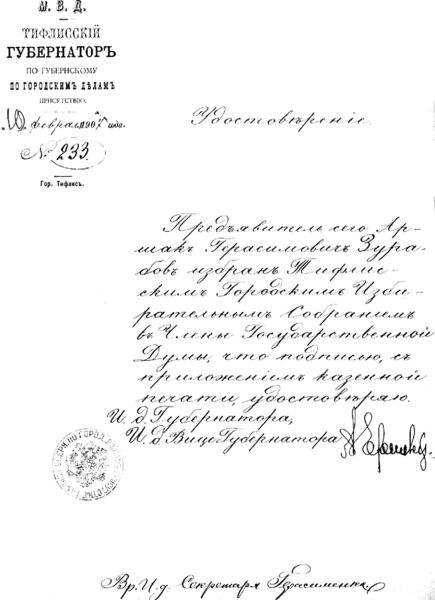 М. В. Д.
ТИФЛИССКІЙ
ГУБЕРНАТОРЪ
ПО ГУБЕРНСКОМУ
ПО ГОРОДСКИМЪ ДѢЛАМЪ
ПРИСУТСТВІЮ.
10 февраля 1907 года.
№ 233.
Гор. Тифлисъ.
Удостовѣреніе.
Предъявитель сего Ар-
шакъ Герасимовичъ Зура-
бовъ избранъ Тифлис-
скимъ Городскимъ Изби-
рательнымъ Собраніемъ
въ Члены Государственной
Думы, что подписью, съ
приложеніемъ казенной
печати, удостовѣряю.
И. д. Губернатора,
И. д. Вице-Губернатора
Вр. И. д. Секретаря Герасименко.